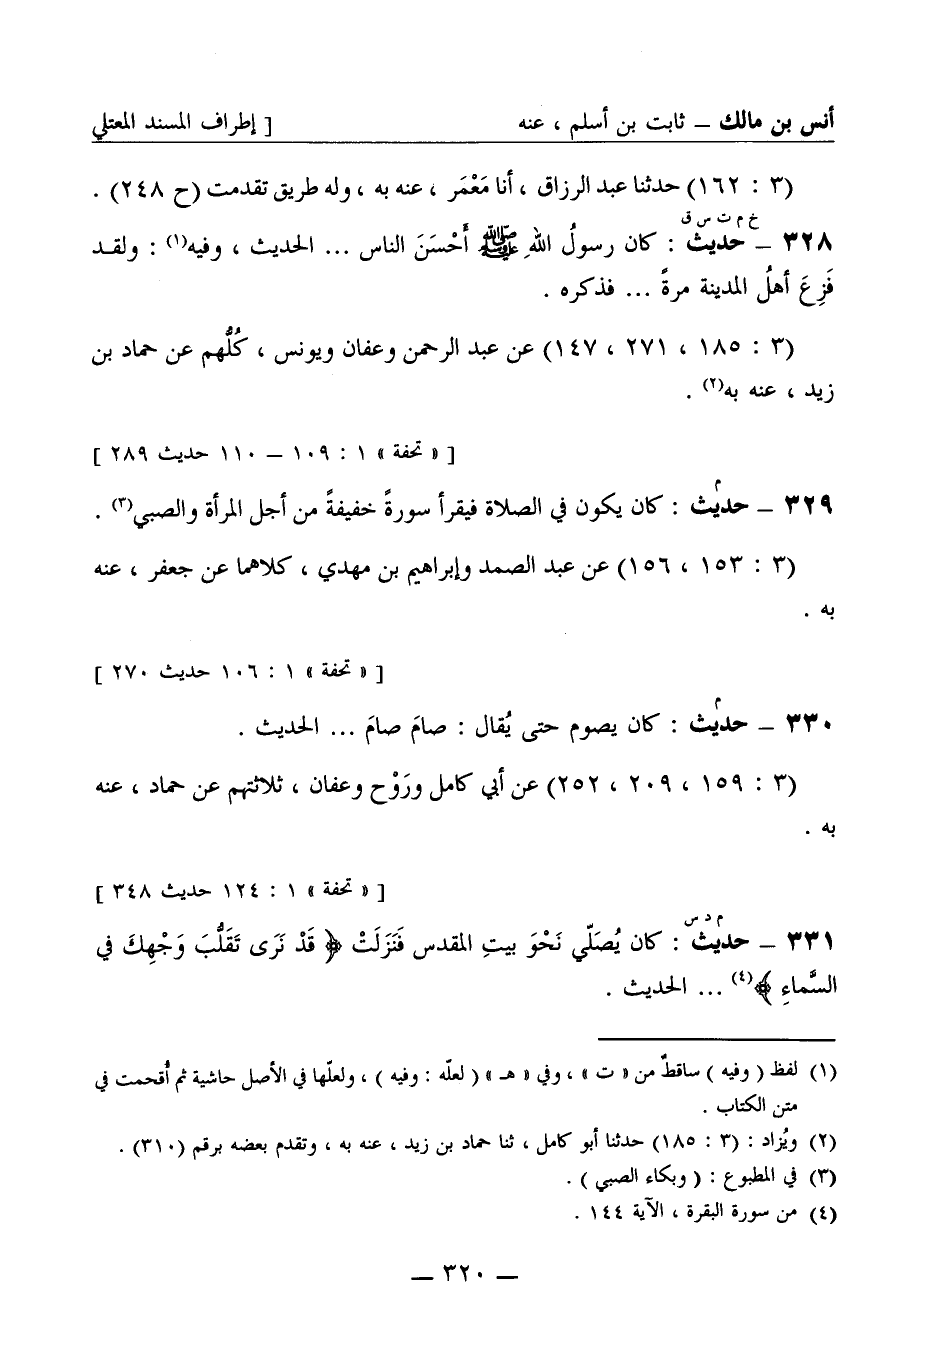 أنس بن مالك ــ ثابت بن أسلم ، عنه [ إطراف المسند المعتلي
(٣ : ١٦٢) حدثنا عبد الرزاق ، أنا مَعْمَر ، عنه به ، وله طريق تقدمت (ح ٢٤٨) .
خ م ت س ق
٣٢٨ ــ حديث : كان رسولُ اللهِ ﷺ أَحْسَنَ الناس ... الحديث ، وفيه(١) : ولقد
فَزِعَ أهلُ المدينة مرةً ... فذكره .
(٣ : ١٨٥ ، ٢٧١ ، ١٤٧) عن عبد الرحمن وعفان ويونس ، كُلُّهم عن حماد بن
زيد ، عنه به(٢) .
[ « تحفة » ١ : ١٠٩ ــ ١١٠ حديث ٢٨٩ ]
م
٣٢٩ ــ حديث : كان يكون في الصلاة فيقرأ سورةً خفيفةً من أجل المرأة والصبي(٣) .
(٣ : ١٥٣ ، ١٥٦) عن عبد الصمد وإبراهيم بن مهدي ، كلاهما عن جعفر ، عنه
به .
[ « تحفة » ١ : ١٠٦ حديث ٢٧٠ ]
م
٣٣٠ ــ حديث : كان يصوم حتى يُقال : صامَ صامَ ... الحديث .
(٣ : ١٥٩ ، ٢٠٩ ، ٢٥٢) عن أبي كامل ورَوْح وعفان ، ثلاثتهم عن حماد ، عنه
به .
[ « تحفة » ١ : ١٢٤ حديث ٣٤٨ ]
م د س
٣٣١ ــ حديث : كان يُصَلّي نَحْوَ بيتِ المقدس فَنَزَلَتْ ﴿ قَدْ نَرَى تَقَلُّبَ وَجْهِكَ في
السَّماءِ ﴾(٤) ... الحديث .
(١) لفظ ( وفيه ) ساقطٌ من « ت » ، وفي « هـ » ( لعلّه : وفيه ) ، ولعلّها في الأصل حاشية ثم أُقحمت في
متن الكتاب .
(٢) ويُزاد : (٣ : ١٨٥) حدثنا أبو كامل ، ثنا حماد بن زيد ، عنه به ، وتقدم بعضه برقم (٣١٠) .
(٣) في المطبوع : ( وبكاء الصبي ) .
(٤) من سورة البقرة ، الآية ١٤٤ .
ــ ٣٢٠ ــ